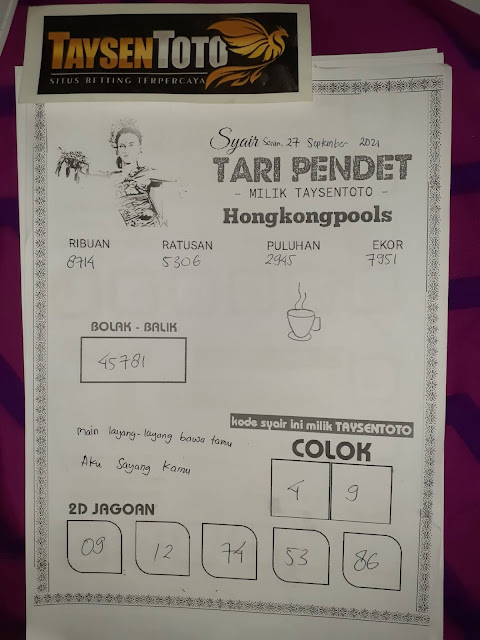 TAYSENTOTO
SITUS BETTING TERPERCAYA
Syair Senin, 27 September 2021
TARI PENDET
- MILIK TAYSENTOTO -
Hongkongpools
RIBUAN RATUSAN PULUHAN EKOR
8714 5306 2945 7951
BOLAK - BALIK
45781
kode syair ini milik TAYSENTOTO
main layang-layang bawa tamu
Aku Sayang Kamu
COLOK
4 9
2D JAGOAN
09 12 74 53 86